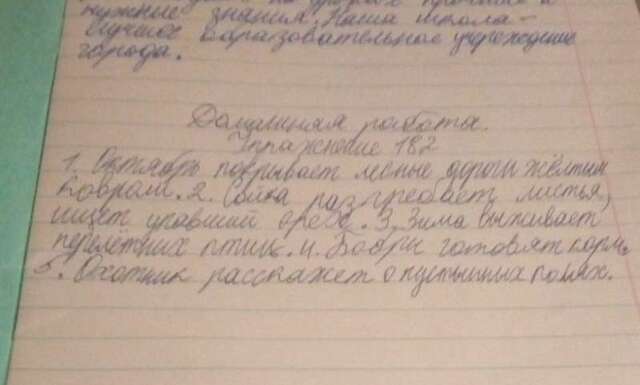 нужные знания. Наша школа –
лучшее образовательное учреждение
города.
Домашная работа.
Упражнение 182
1. Октябрь покрывает лесные дороги жёлтым
ковром. 2. Сойка разгребает листья,
ищет упавший орех. 3. Зима выживает
перелётных птиц. 4. Бобры готовят корм.
5. Охотник расскажет о пустынных полях.